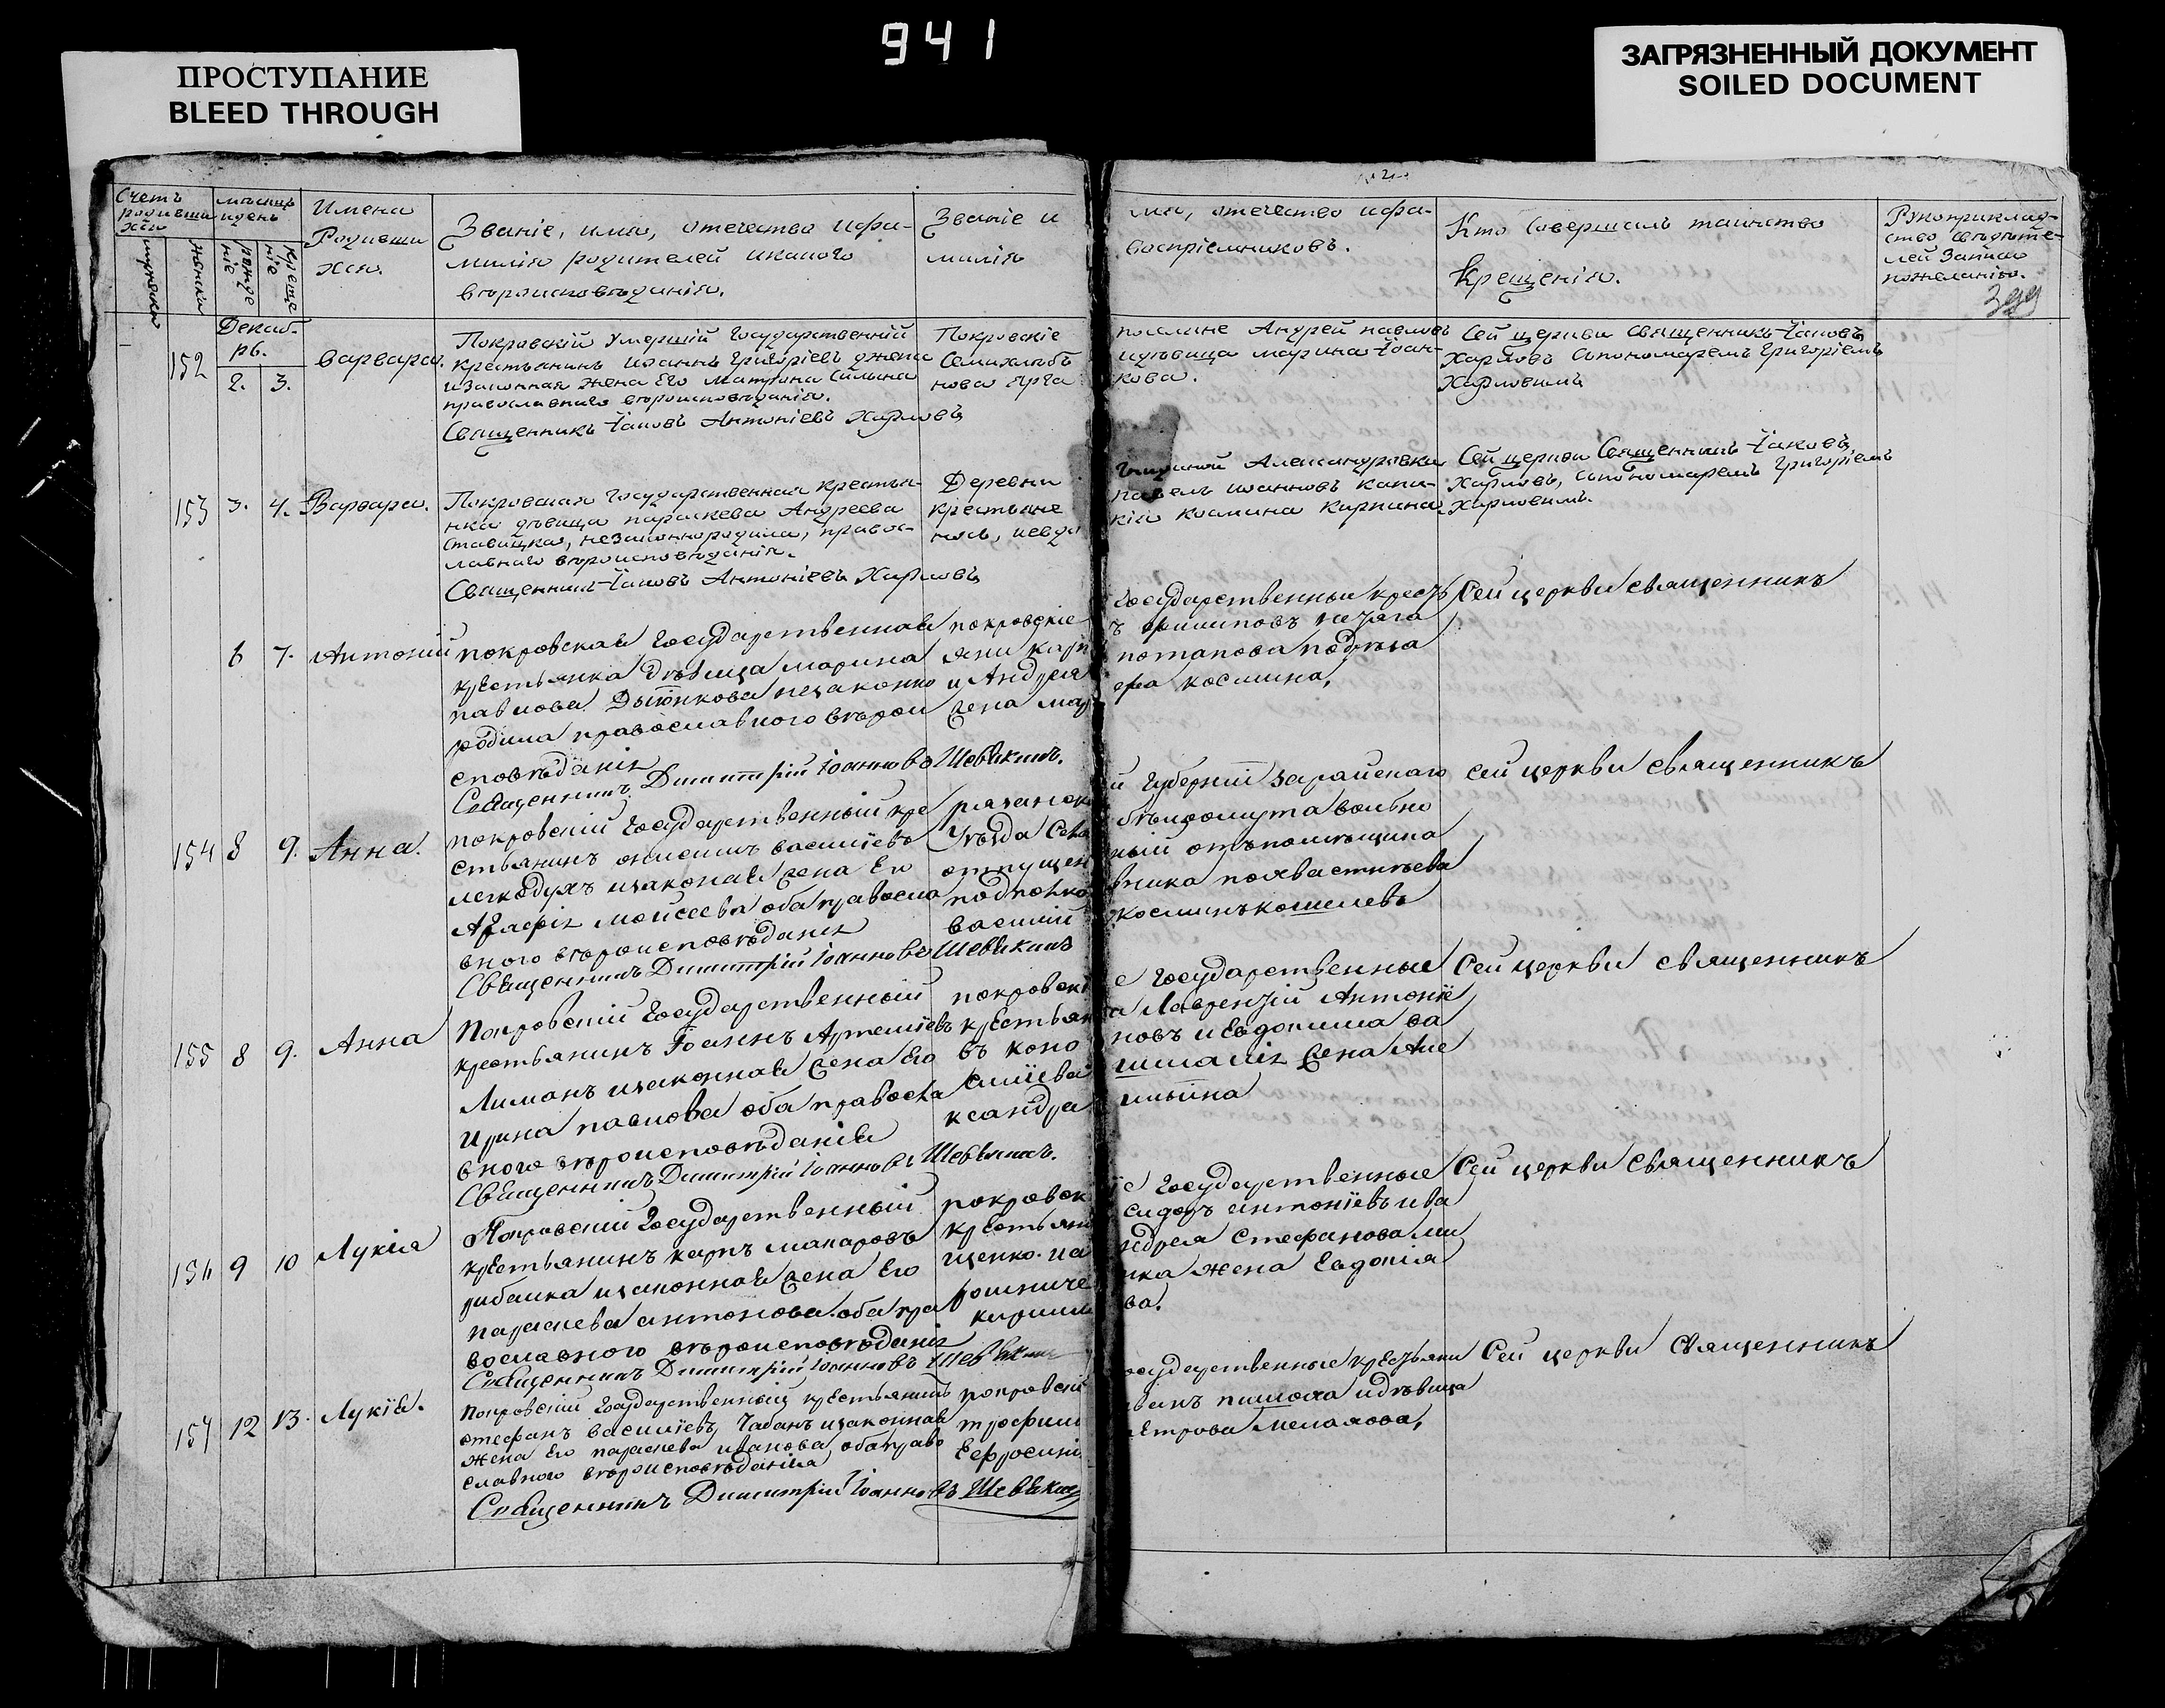 941
ПРОСТУПАНИЕ
BLEED THROUGH
ЗАГРЯЗНЕННЫЙ ДОКУМЕНТ
SOILED DOCUMENT
Счетъ
мѣсяцъ
и день
Имена
Родивши
хся.
Званіе, имя, отечество и фа-
милія родителей и какого
вѣроисповѣданія.
Званіе и
милія
мя, отечество и фа-
воспріемниковъ.
Кто совершалъ таинство
Крещенія.
Рукоприклад-
ство свидѣте-
лей записи
по желанію.
Декаб-
рь.
152
2. 3.
Варвара.
Покровскій умершій Государственный
крестьянинъ Иоаннъ Григоріевъ
и законная жена Его Матрона
православнаго вѣроисповѣданія.
Священникъ Іаковъ Антоніевъ Харловъ
Покровскіе
нова
поселяне Андрей Павловъ
и дѣвица Марина Іоан-
кова.
Сей церкви священникъ Іаковъ
Харловъ съ пономаремъ Григоріемъ
Харловымъ
153 3. 4. Варвара.
Покровская Государственная крестья-
нка дѣвица Параскева Андреева
Ставицка, незаконнородила, правос-
лавнаго вѣроисповѣданія.
Священникъ Іаковъ Антоніевъ Харловъ
Деревни
крестьяне
Александровки
Павелъ Иоанновъ
Космина Киркина
Сей церкви Священникъ Іаковъ
Харловъ, съ пономаремъ Григоріемъ
Харловымъ.
6 7. Антоній
покровская Государственная
крестьянка Дѣвица Марина
павлова незаконно
родила православного вѣрои
сповѣданія
Священникъ Димитрій Іоанновъ Шевыкинъ.
покровскіе
яни карп
и Андрея
жена мар
Государственныи крест
ъ филиповъ
потапова
фа космина,
Сей церкви священникъ
154 8 9. Анна.
покровскій Государственный кре
стьянинъ онисимъ василіевъ
легкодухъ изаконная жена Его
Агафія Моисеева оба правосла
вного вѣроисповѣданія
Священникъ Димитрій Іоанновъ Шевыкинъ
Уѣзда Села
отпущен
подполко
василій
й Губерніи зарайскаго
ный отъ помѣщика
вника
косминъ кошелевъ
сей церкви священникъ
155 8 9. Анна
Покровскій Государственный
крестьянинъ Іоаннъ Артеміевъ
Лиманъ изаконная жена Его
Ирина павлова оба правосла
вного вѣроисповѣданія
Священникъ Димитрій Іоанновъ Шевыкинъ.
покровскі
крестьян
въ коно
силіева
ксандра
е Государственные
а Лаврентій Антоніе
новъ и Евдокима ва
жена Але
ильина
Сей церкви священникъ
156 9 10 Лукія
Покровскій Государственный
крестьянинъ карпъ макаровъ
рибалка изаконная жена Его
параскева антонова. оба пра
вославного вѣроисповѣданія
Священникъ Димитрій Іоанновъ Шевыкинъ
покровск
крестьян
щенко. и а
рошниче
кирилл
іе Государственные
сидоръ антоніевъ ива
ндрея Стефанова ми
ика жена Евдокія
ва.
Сей церкви священникъ
157 12 13. Лукія.
Покровскій Государственный крестьянинъ
стефанъ василіевъ Чабанъ изаконная
жена Его параскева иванова, оба право
славного вѣроисповѣданія
Священникъ Димитрій Іоанновъ Шевыкинъ
покровскі
трофим
Ефросині
осударственные крестьяни
и дѣвица
етрова
Сей церкви Священникъ